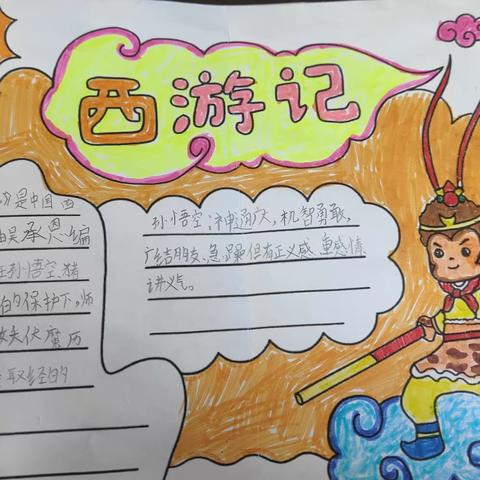 西游记
是中国西
吴承恩编
在孙悟空、猪
的保护下,师
妖伏魔历
取经的
孙悟空:神通广大,机智勇敢,
广结朋友、急躁但有正义感、重感情
讲义气。